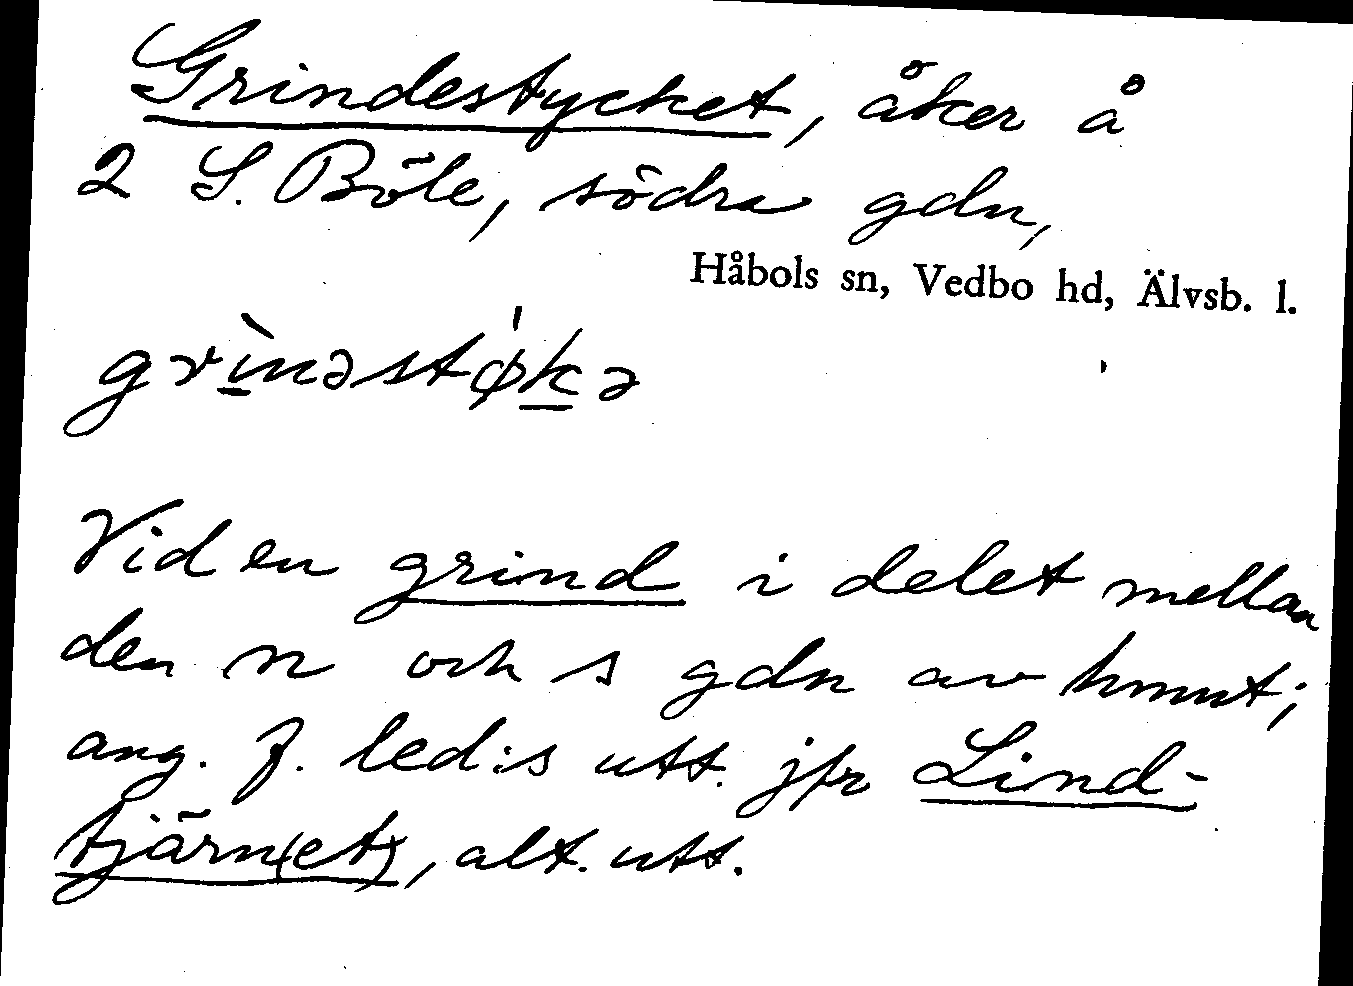 Grindestycket, åker å
2 S. Böle, södra gdn,
Håbols sn, Vedbo hd, Älvsb. l.
grìnəstø'kə
Vid en grind i delet mellan
den n och s gdn av hmnt;
ang. f. led:s utt. jfr Lind-
tjärn(et), alt. utt.